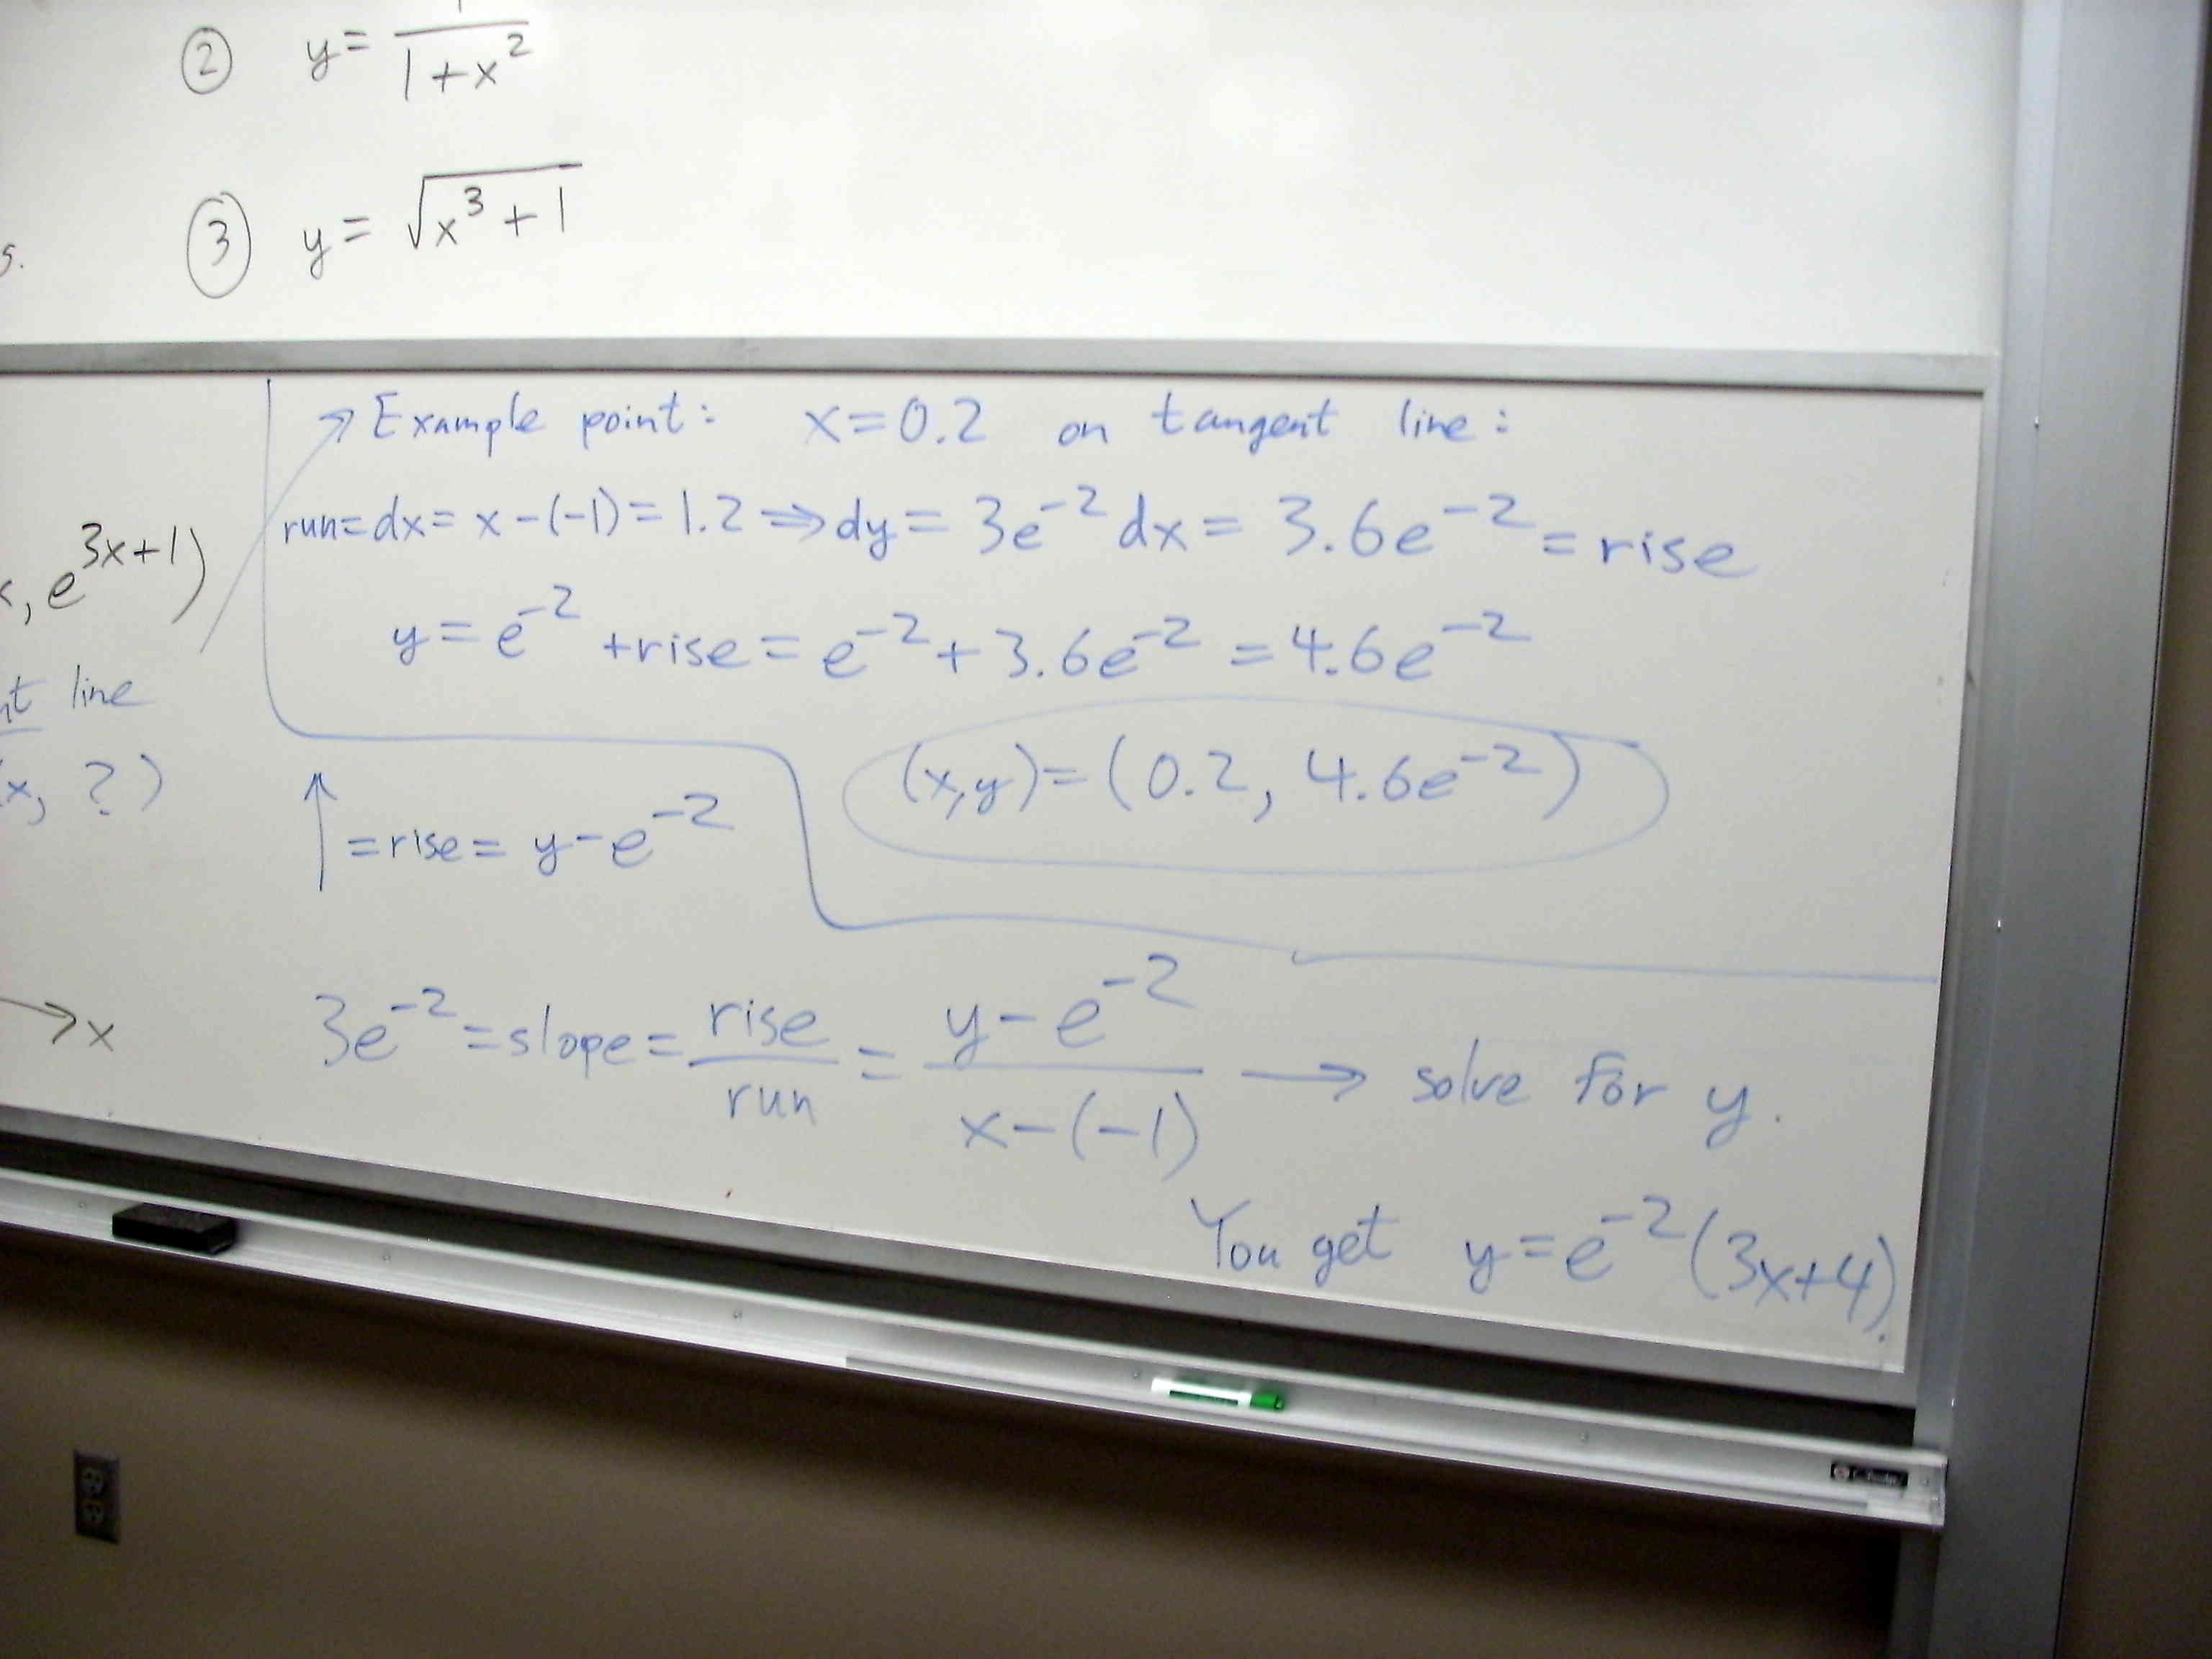 ② y = 1/(1+x²)
s.
③ y = √(x³+1)
Example point: x=0.2 on tangent line:
run=dx= x-(-1)=1.2 ⇒ dy= 3e⁻²dx= 3.6e⁻² = rise
y = e⁻² +rise= e⁻²+3.6e⁻² =4.6e⁻²
(x,y)=(0.2, 4.6e⁻²)
, e³ˣ⁺¹)
line
x, ?)
↑ =rise= y-e⁻²
→x
3e⁻²=slope= rise/run = (y-e⁻²)/(x-(-1)) → solve for y.
You get y=e⁻²(3x+4).